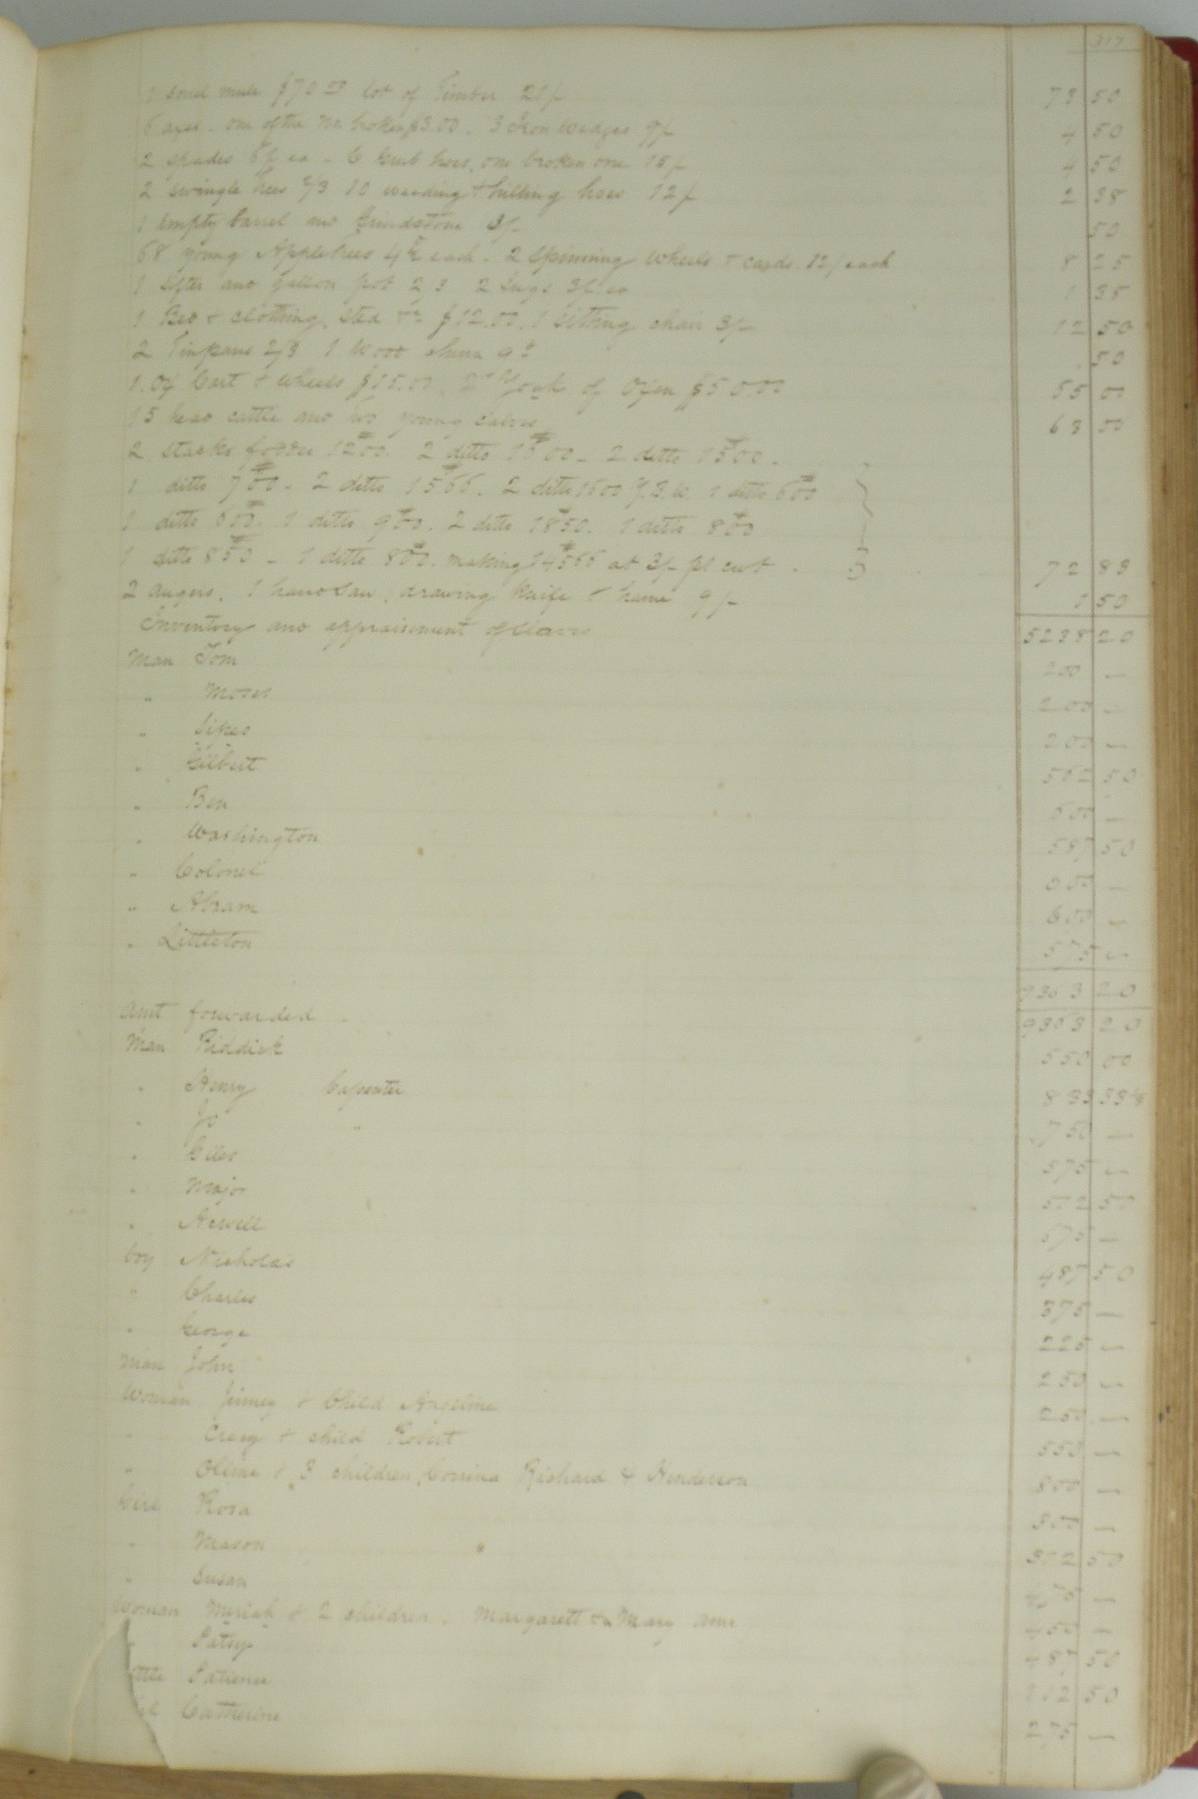 317
1 sorrel mule $70.00 lot of Timber 21/- 73 50
6 axes. one of the No. broken $3.00. 3 Iron wedges 9/- 4 50
2 spades 6/ ea - 6 grub hoes, one broken one 15/- 4 50
2 swingle trees 2/3 10 weeding & hilling hoes 12/- 2 38
1 empty barrel and Grindstone 3/- 50
68 young Appletrees each. 2 Spinning Wheels & cards. 12/ each 8 25
1 sifter and gallon pot 2/3 2 Jugs 3/- 1 38
1 Bed & clothing, sted &c $12.00. 1 sitting chair 3/- 12 50
2 Tinpans 2/3 1 wood churn 9d 50
1 Ox Cart & wheels 2nd Yoak of Oxen 55 00
15 head cattle and two young calves 63 00
2 stacks fodder 1200. 2 ditto 1500 - 2 ditto 1500.
1 ditto 700 - 2 ditto 1566. 2 ditto 1600 1 ditto 600
1 ditto 600. 1 ditto 900. 2 ditto 1850. 1 ditto 800
1 ditto 850 - 1 ditto 800. making 14566 at 3/- pr cwt. 72 83
2 augers, 1 hand saw, drawing knife & hame 9/- 1 50
Inventory and appraisement of slaves 5238 20
Man Tom 200 —
" Moses 200 —
" Sikes 200 —
" Gilbert 562 50
" Ben 600 —
" Washington 587 50
" Colonel 600 —
" Abram 600 —
" Littleton 575 —
9363 20
Amt forwarded 9363 20
Man Riddick 550 00
" Henry Carpenter 833 33⅓
" Jo " 750 —
" Giles 575 —
" Major 562 50
" Newell 575 —
boy Nicholas 487 50
" Charles 375 —
" George 225 —
Man John 250 —
Woman Jinney & Child Angeline 250 —
" Creasy & child Robert 550 —
" Oline & 3 children, Corrina Richard & Henderson 800 —
Girl Rosa 300 —
" Mason 312 50
" Susan —
Woman Meriah & 2 children. Margarett & Mary Ann 450 —
" Patsy 487 50
Patience 112 50
Catherine 275 —